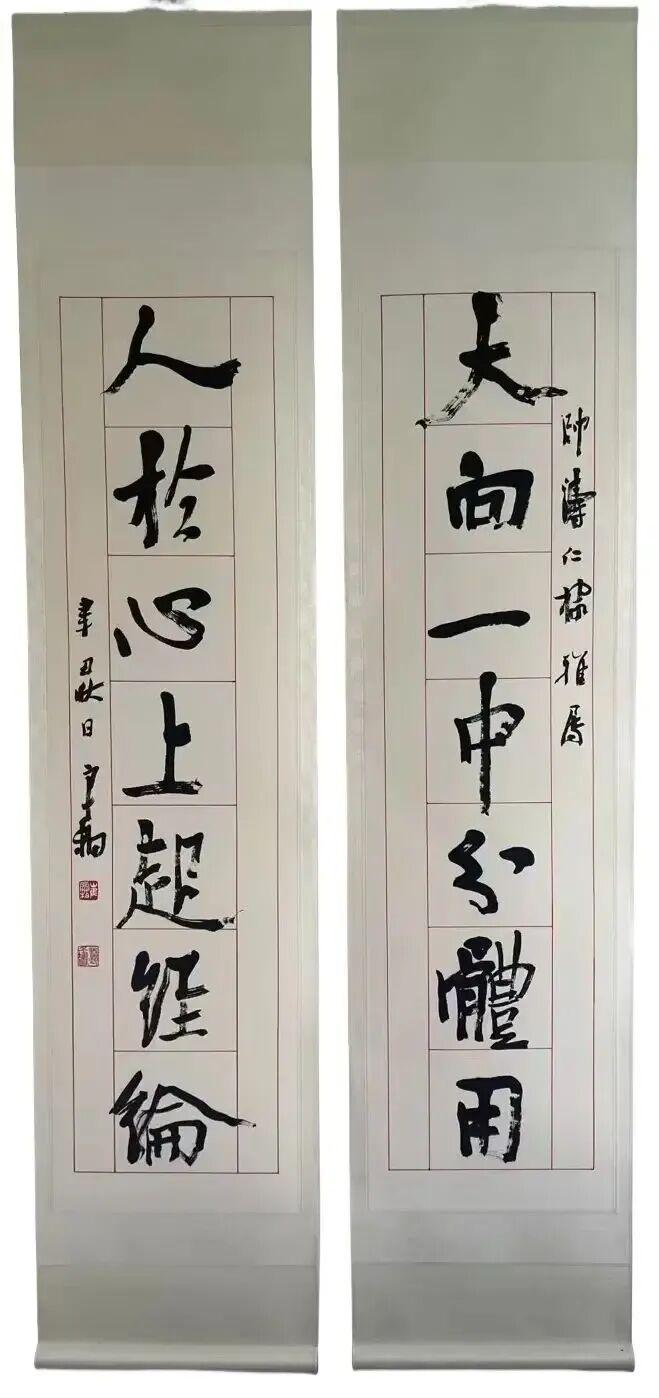 帥濤仁棣雅屬
天向一中分體用
人於心上起經綸
辛丑秋日